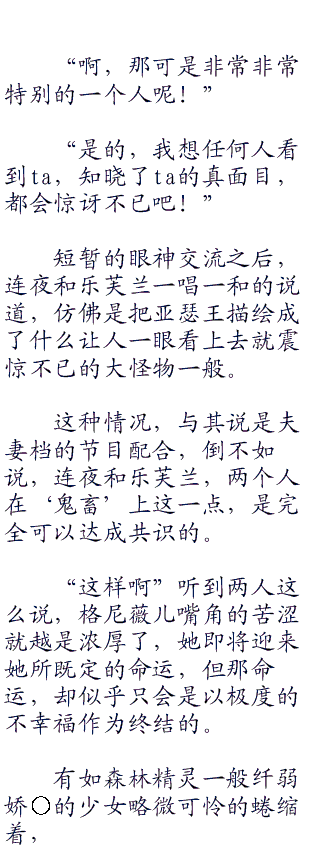 “啊，那可是非常非常
特别的一个人呢！”
“是的，我想任何人看
到ta，知晓了ta的真面目，
都会惊讶不已吧！”
短暂的眼神交流之后，
连夜和乐芙兰一唱一和的说
道，仿佛是把亚瑟王描绘成
了什么让人一眼看上去就震
惊不已的大怪物一般。
这种情况，与其说是夫
妻档的节目配合，倒不如
说，连夜和乐芙兰，两个人
在‘鬼畜’上这一点，是完
全可以达成共识的。
“这样啊”听到两人这
么说，格尼薇儿嘴角的苦涩
就越是浓厚了，她即将迎来
她所既定的命运，但那命
运，却似乎只会是以极度的
不幸福作为终结的。
有如森林精灵一般纤弱
娇○的少女略微可怜的蜷缩
着，